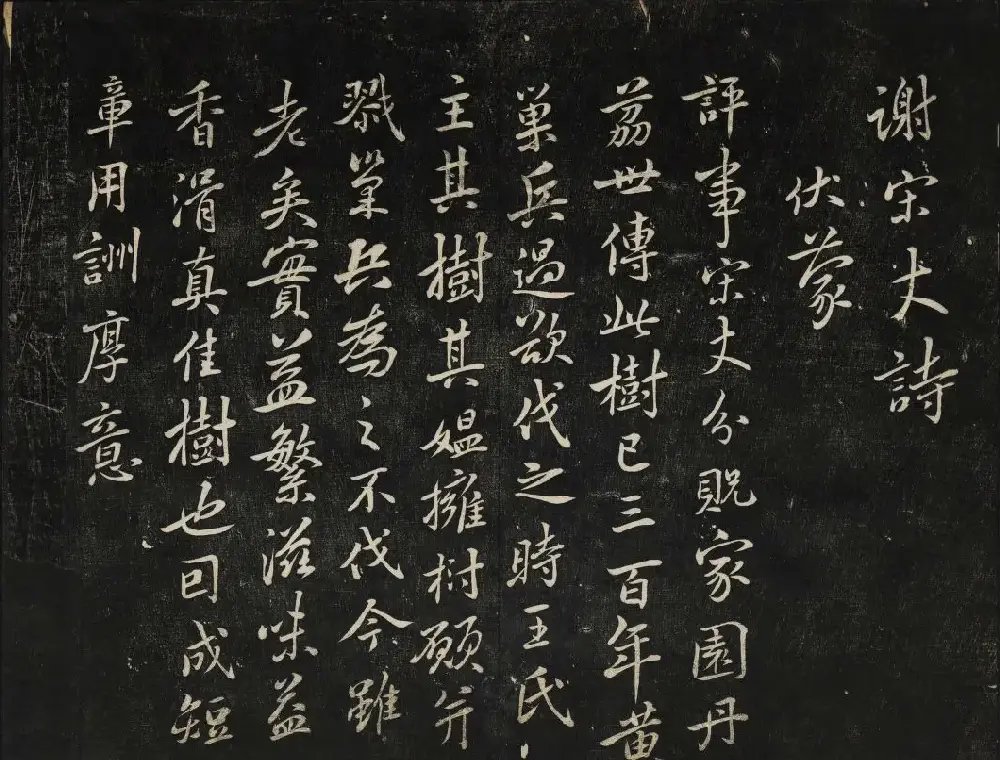 謝宋丈詩
伏蒙
評事宋丈分貺家園丹
茘世傳此樹已三百年黄
巢兵過欲伐之時王氏
主其樹其媪擁樹願并
戮巢兵為之不伐今雖
老矣實益繁滋味益
香滑真佳樹也因成短
章用詶厚意